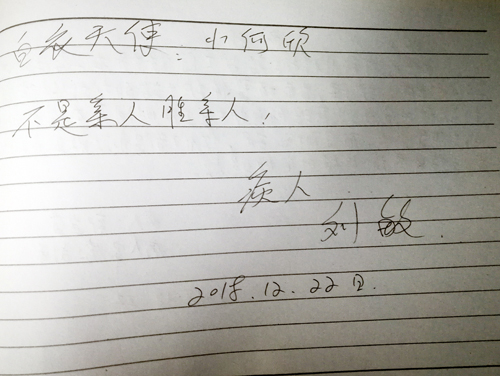 白衣天使：小何欣
不是亲人胜亲人！
病人
刘敏.
2018.12.22日.